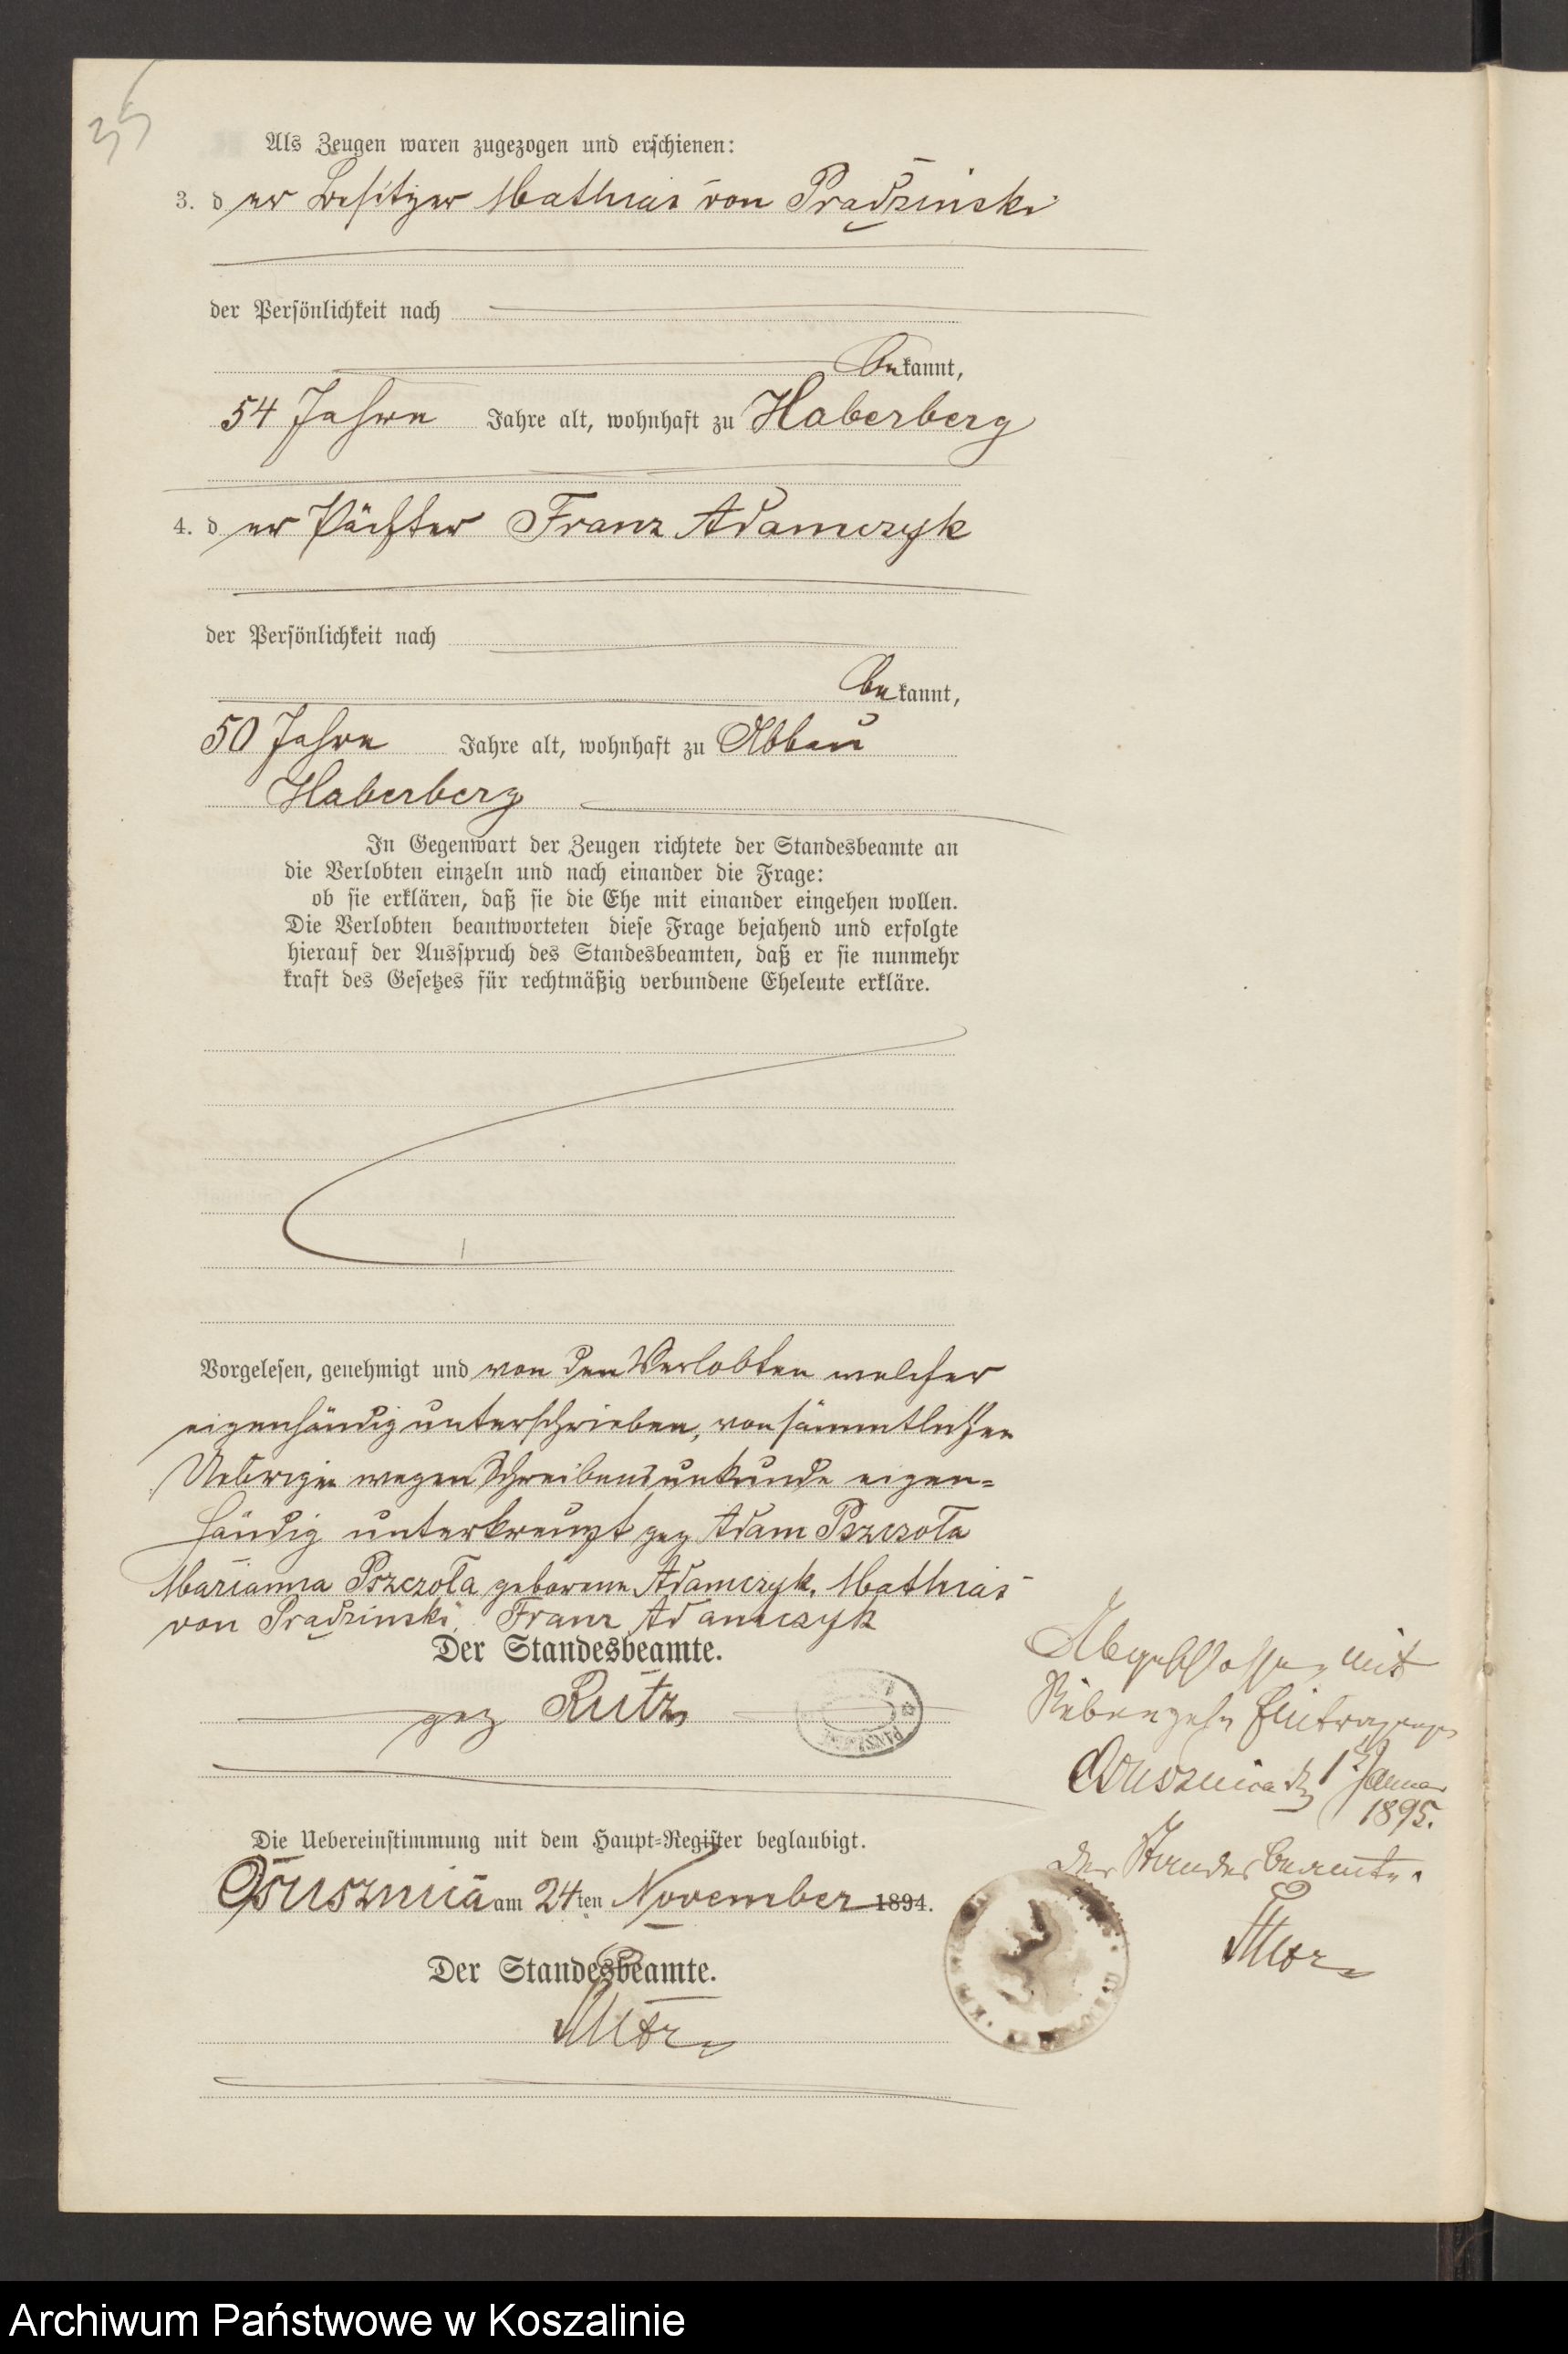 35
Als Zeugen waren zugezogen und erschienen:
3. der Besitzer Mathias von Prądzinski
der Persönlichkeit nach
bekannt,
54 Jahre Jahre alt, wohnhaft zu Haberberg
4. der Pächter Franz Adamczyk
der Persönlichkeit nach
bekannt,
50 Jahre Jahre alt, wohnhaft zu Abbau
Haberberg
In Gegenwart der Zeugen richtete der Standesbeamte an
die Verlobten einzeln und nach einander die Frage:
ob sie erklären, daß sie die Ehe mit einander eingehen wollen.
Die Verlobten beantworteten diese Frage bejahend und erfolgte
hierauf der Ausspruch des Standesbeamten, daß er sie nunmehr
kraft des Gesetzes für rechtmäßig verbundene Eheleute erkläre.
Vorgelesen, genehmigt und von den Verlobten welcher
eigenhändig unterschrieben, von sämmtlichen
Uebrigen wegen Schreibensunkunde eigen-
händig unterkreuzt gez Adam Pszczoła
Marianna Pszczoła geborene Adamczyk. Mathias
von Prądzinski, Franz Adamczyk
Der Standesbeamte.
gez Rutz
Die Uebereinstimmung mit dem Haupt-Register beglaubigt.
Ossusznica am 24ten November 1894.
Der Standesbeamte.
Rutz
Abgeschlossen mit
Siebenzehn Eintragungen
Ossusznica d 1 Januar
1895.
Der Standesbeamte.
Rutz
Archiwum Państwowe w Koszalinie